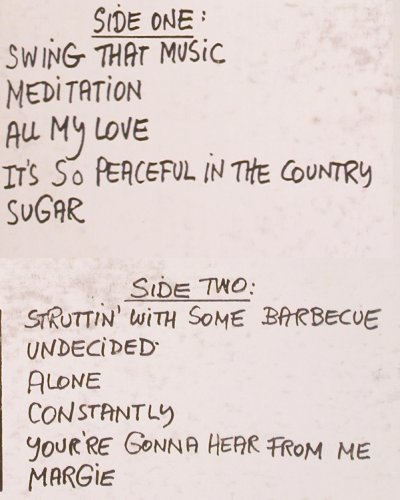 SIDE ONE:
SWING THAT MUSIC
MEDITATION
ALL MY LOVE
IT'S SO PEACEFUL IN THE COUNTRY
SUGAR
SIDE TWO:
STRUTTIN' WITH SOME BARBECUE
UNDECIDED
ALONE
CONSTANTLY
YOUR'RE GONNA HEAR FROM ME
MARGIE